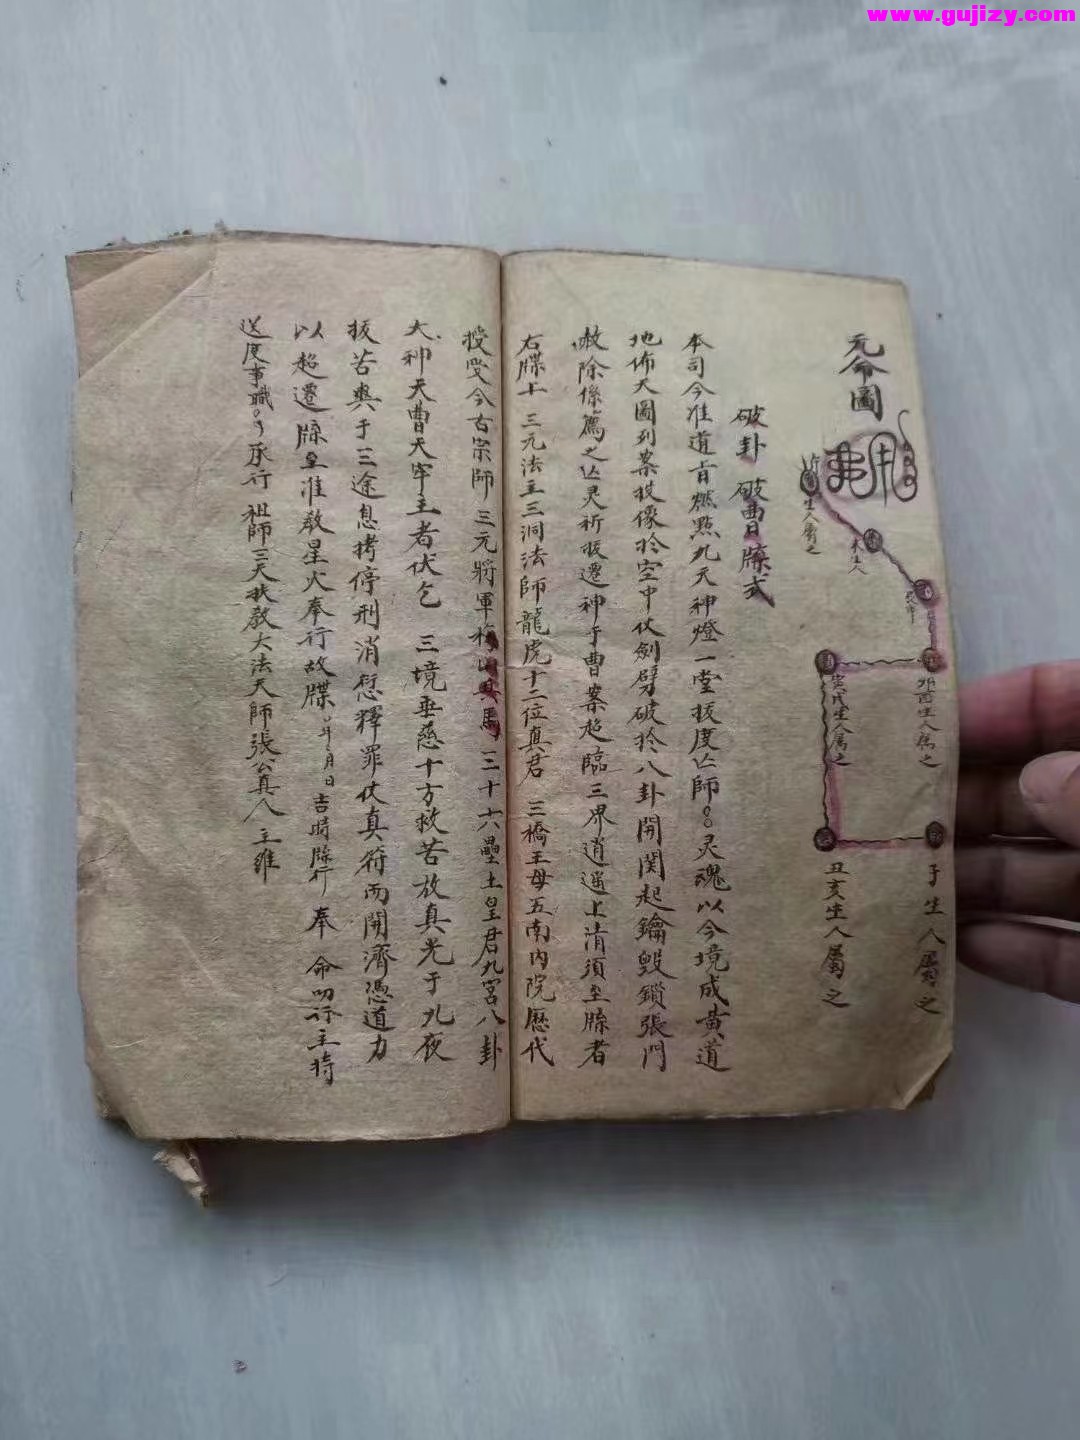 www.gujizy.com
元命圖
生人屬之
未生人
卯酉生人属之
寅戌生人属之
子生人屬之
丑亥生人屬之
破卦破曹牒式
本司今准道旨燃點九天神燈一堂拔度亡師〇〇灵魂以今境成黄道
地佈天圖列案投像於空中仗劍劈破於八卦開関起鑰毀鎖張門
赦除係薦之亾灵祈拔遷神于曹案超臨三界逍遥上清須至牒者
右牒上 三元法主三洞法師龍虎十二位真君 三橋王母五南内院歷代
授受今古宗師 三元將軍梅山兵馬三十六壘土皇君九宮八卦
大神天曹天宰主者伏乞 三境垂慈十方救苦放真光于九夜
拔苦爽于三途息拷停刑消愆釋罪仗真符而開濟憑道力
以超遷牒至准教星火奉行故牒〇年〇月〇日吉時牒行 奉 命叨行主持
送度事職〇〇承行 祖師三天扶教大法天師張公真人主維